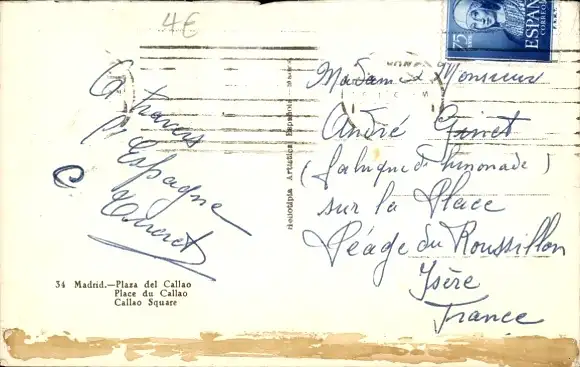 4€
75
ESPAÑA
CORREOS
A travers
l'Espagne
Heliotipia Artística Española
Madame et Monsieur
André Ginet
(fabrique de limonade)
sur la Place
Péage du Roussillon
Isère
France
34 Madrid.—Plaza del Callao
Place du Callao
Callao Square